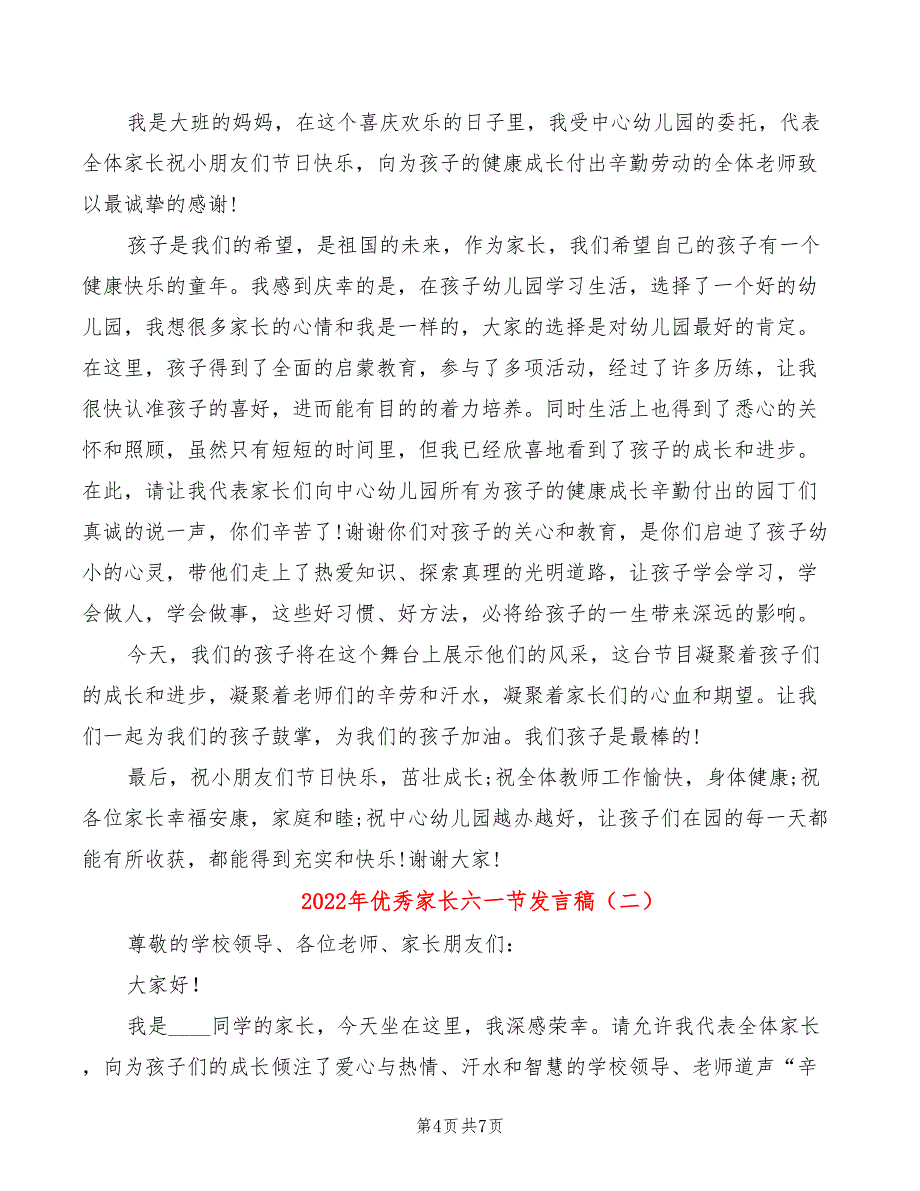 我是大班的妈妈，在这个喜庆欢乐的日子里，我受中心幼儿园的委托，代表
全体家长祝小朋友们节日快乐，向为孩子的健康成长付出辛勤劳动的全体老师致
以最诚挚的感谢!
孩子是我们的希望，是祖国的未来，作为家长，我们希望自己的孩子有一个
健康快乐的童年。我感到庆幸的是，在孩子幼儿园学习生活，选择了一个好的幼
儿园，我想很多家长的心情和我是一样的，大家的选择是对幼儿园最好的肯定。
在这里，孩子得到了全面的启蒙教育，参与了多项活动，经过了许多历练，让我
很快认准孩子的喜好，进而能有目的的着力培养。同时生活上也得到了悉心的关
怀和照顾，虽然只有短短的时间里，但我已经欣喜地看到了孩子的成长和进步。
在此，请让我代表家长们向中心幼儿园所有为孩子的健康成长辛勤付出的园丁们
真诚的说一声，你们辛苦了!谢谢你们对孩子的关心和教育，是你们启迪了孩子幼
小的心灵，带他们走上了热爱知识、探索真理的光明道路，让孩子学会学习，学
会做人，学会做事，这些好习惯、好方法，必将给孩子的一生带来深远的影响。
今天，我们的孩子将在这个舞台上展示他们的风采，这台节目凝聚着孩子们
的成长和进步，凝聚着老师们的辛劳和汗水，凝聚着家长们的心血和期望。让我
们一起为我们的孩子鼓掌，为我们的孩子加油。我们孩子是最棒的!
最后，祝小朋友们节日快乐，茁壮成长;祝全体教师工作愉快，身体健康;祝
各位家长幸福安康，家庭和睦;祝中心幼儿园越办越好，让孩子们在园的每一天都
能有所收获，都能得到充实和快乐!谢谢大家!
2022年优秀家长六一节发言稿（二）
尊敬的学校领导、各位老师、家长朋友们：
大家好！
我是____同学的家长，今天坐在这里，我深感荣幸。请允许我代表全体家长
，向为孩子们的成长倾注了爱心与热情、汗水和智慧的学校领导、老师道声“辛
第4页 共7页